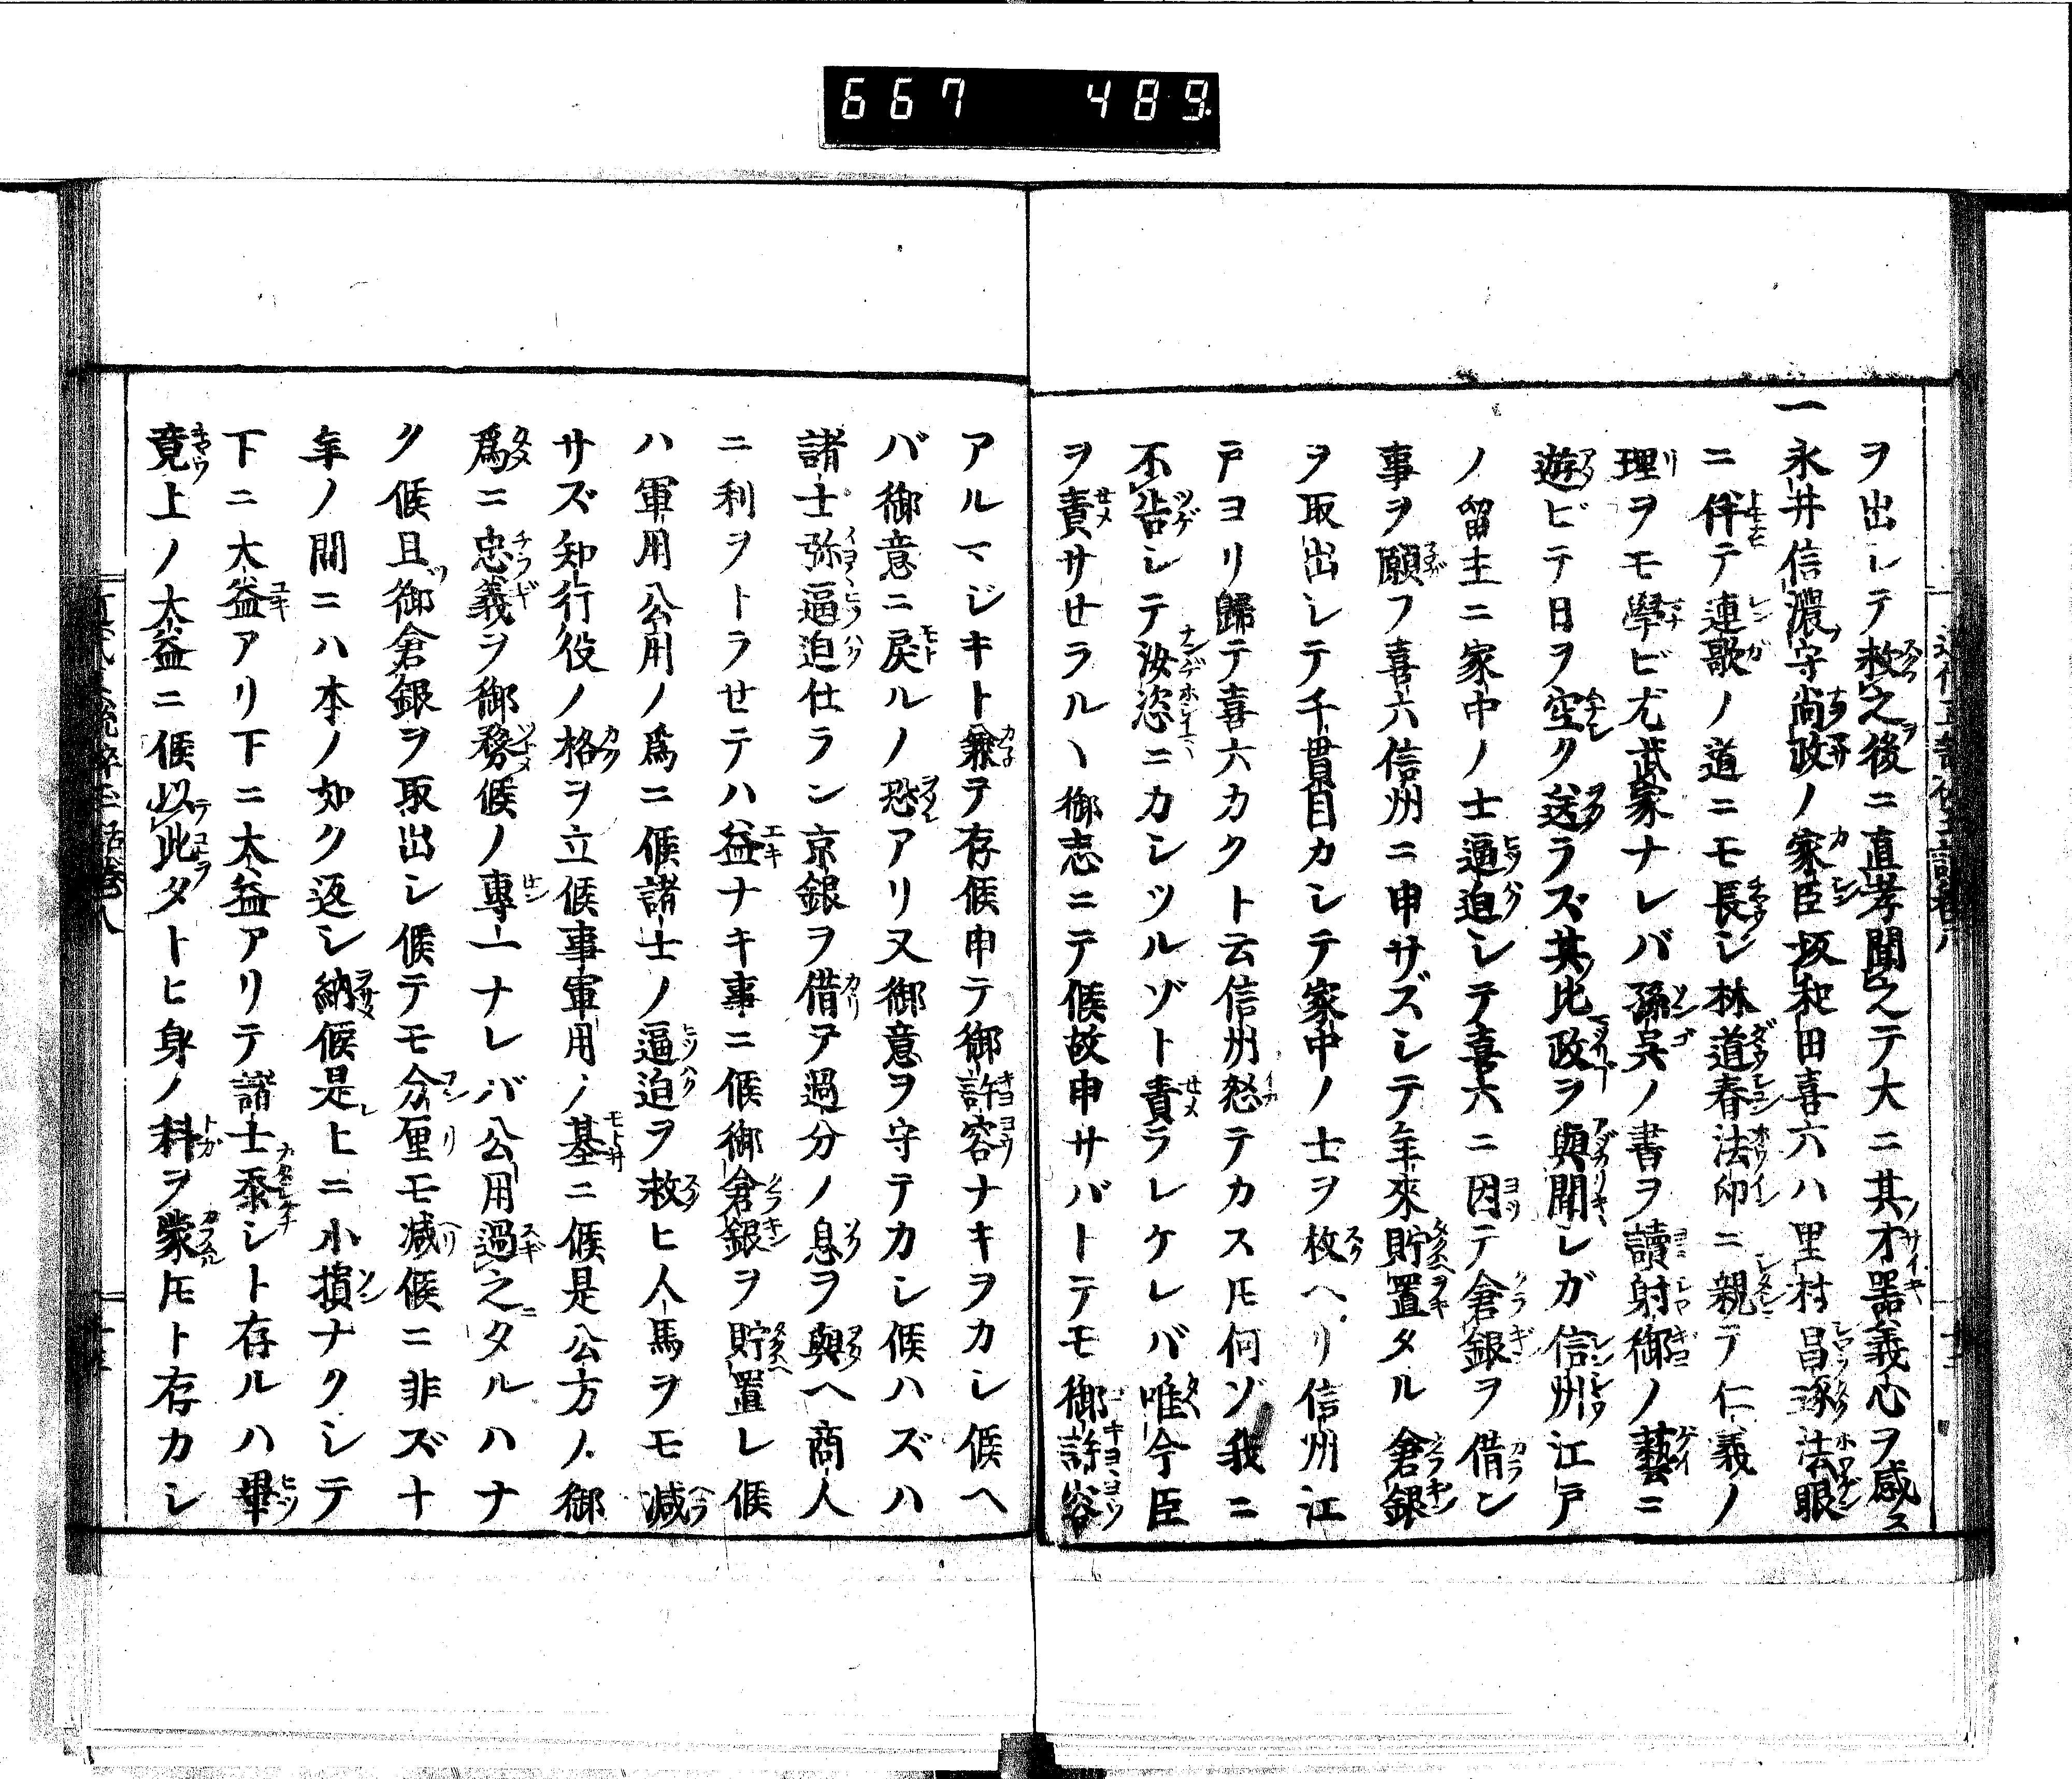 667 489
ヲ出シテ救之後ニ直孝聞之テ大ニ其才器義心ヲ感ス
一永井信濃守尚政ノ家臣坂和田喜六ハ里村昌琢法眼
ニ伴テ連歌ノ道ニモ長シ林道春法印ニ親テ仁義ノ
理ヲモ學ビ尤武家ナレバ孫呉ノ書ヲ讀射御ノ藝ニ
遊ビテ日ヲ空ク送ラズ其比政ヲ與聞シガ信州江戸
ノ留主ニ家中ノ士逼迫シテ喜六ニ因テ倉銀ヲ借ン
事ヲ願フ喜六信州ニ申サズシテ年來貯置タル倉銀
ヲ取出シテ千貫目カシテ家中ノ士ヲ救ヘリ信州江
戸ヨリ歸テ喜六カクト云信州怒テカスㇳモ何ゾ我ニ
不告シテ汝恣ニカシツルゾト責ラレケレバ唯今臣
ヲ責サセラルヽ御志ニテ候故申サバトテモ御許容
アルマジキト兼テ存候申テ御許容ナキヲカシ候ヘ
バ御意ニ戻ルノ恐アリ又御意ヲ守テカシ候ハズハ
諸士弥逼迫仕ラン京銀ヲ借テ過分ノ息ヲ與ヘ商人
ニ利ヲトラセテハ益ナキ事ニ候御倉銀ヲ貯置レ候
ハ軍用公用ノ爲ニ候諸士ノ逼迫ヲ救ヒ人馬ヲモ減
サズ知行役ノ格ヲ立候事軍用ノ基ニ候是公方ノ御
爲ニ忠義ヲ御務候ノ專一ナレバ公用過之タルハナ
ク候且御倉銀ヲ取出シ候テモ分厘モ減候ニ非ズ十
年ノ間ニハ本ノ如ク返シ納候是レヒニ小損ナクシテ
下ニ大益アリ下ニ大益アリテ諸士忝シト存ルハ畢
竟上ノ大益ニ候以此タトヒ身ノ科ヲ蒙ㇳモト存カシ